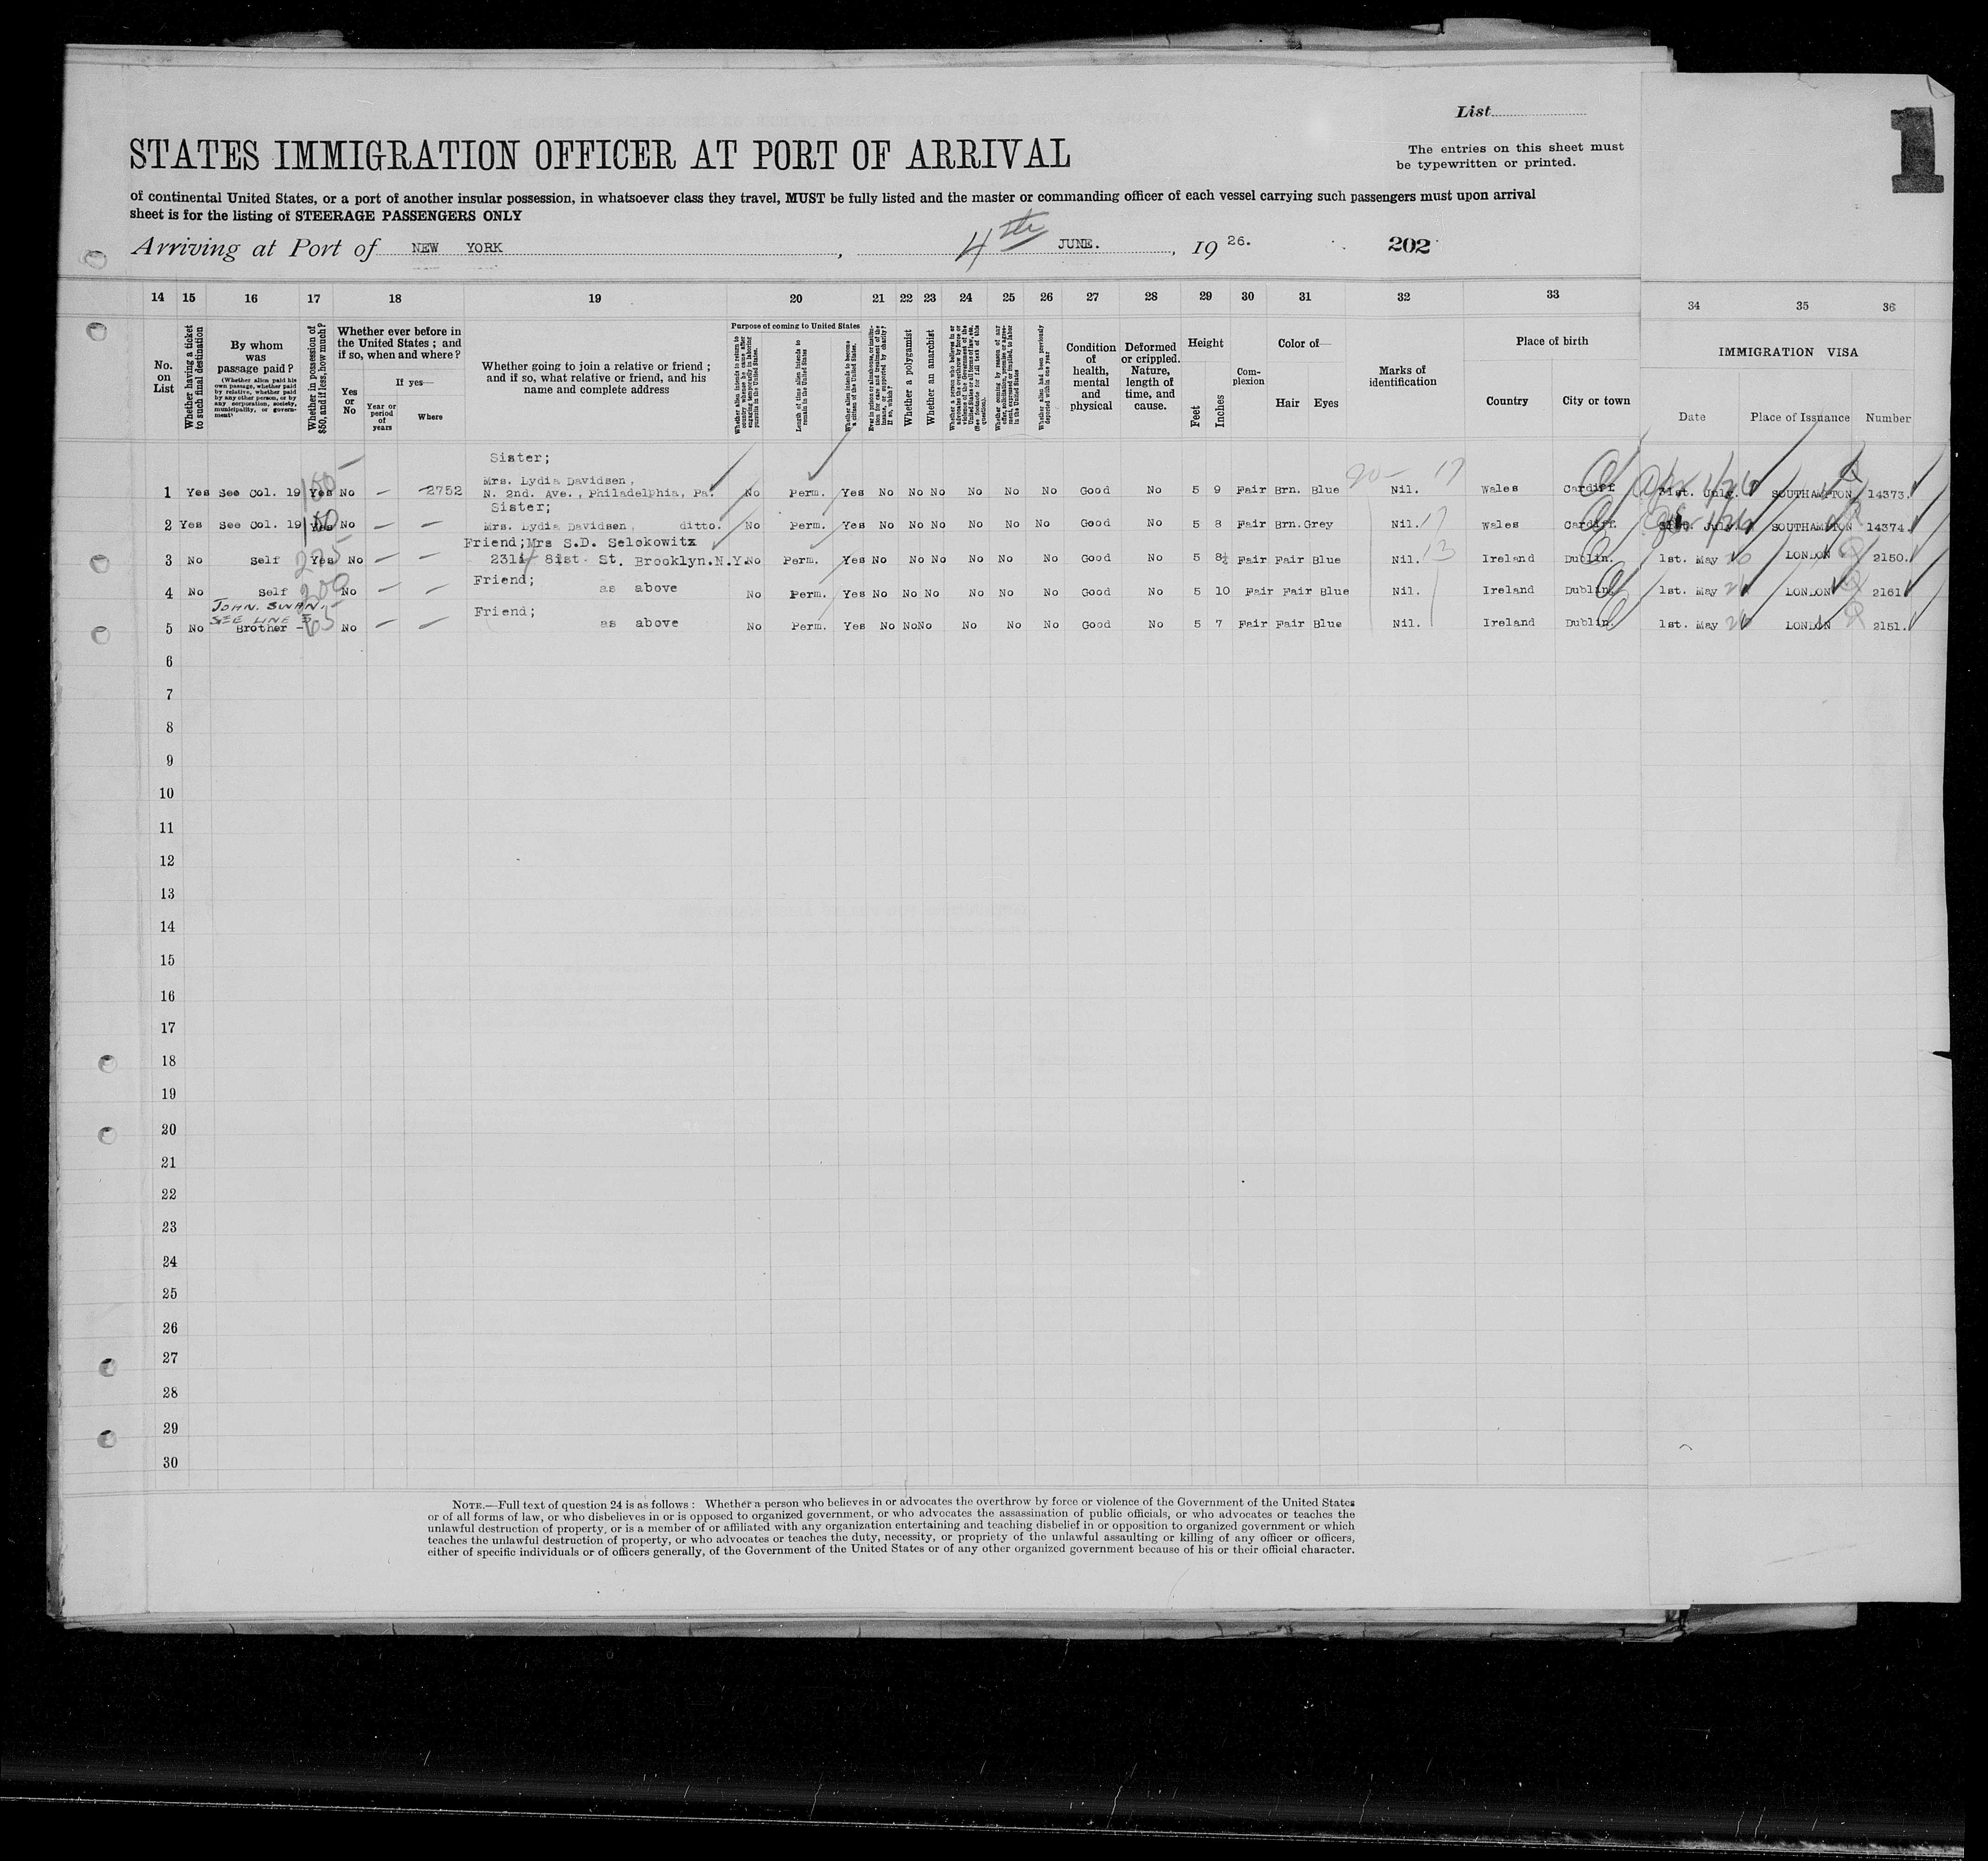 List
1
STATES IMMIGRATION OFFICER AT PORT OF ARRIVAL
The entries on this sheet must
be typewritten or printed.
of continental United States, or a port of another insular possession, in whatsoever class they travel, MUST be fully listed and the master or commanding officer of each vessel carrying such passengers must upon arrival
sheet is for the listing of STEERAGE PASSENGERS ONLY
Arriving at Port of NEW YORK, 4th JUNE., 19 26. 202
14 15 16 17 18 19 20 21 22 23 24 25 26 27 28 29 30 31 32 33 34 35 36
No. on List
Whether having a ticket to such final destination
By whom was passage paid?
(Whether alien paid his own passage, whether paid by relative, whether paid by any other person, or by any corporation, society, municipality, or government)
Whether in possession of $50, and if less, how much?
Whether ever before in the United States; and if so, when and where?
Yes or No
If yes—
Year or period of years
Where
Whether going to join a relative or friend; and if so, what relative or friend, and his name and complete address
Purpose of coming to United States
Whether alien intends to return to country whence he came after engaging temporarily in laboring pursuits in the United States.
Length of time alien intends to remain in the United States
Whether alien intends to become a citizen of the United States.
Ever in prison or almshouse, or institution for care and treatment of the insane, or supported by charity? If so, which?
Whether a polygamist
Whether an anarchist
Whether a person who believes in or advocates the overthrow by force or violence of the Government of the United States or all forms of law, etc. (See footnote for full text of this question).
Whether coming by reason of any offer, solicitation, promise or agreement, expressed or implied, to labor in the United States
Whether alien had been previously deported within one year
Condition of health, mental and physical
Deformed or crippled. Nature, length of time, and cause.
Height
Feet
Inches
Complexion
Color of—
Hair
Eyes
Marks of identification
Place of birth
Country
City or town
IMMIGRATION VISA
Date
Place of Issuance
Number
Sister;
Mrs. Lydia Davidsen,
1 Yes See Col. 19 Yes 100 No — —2752 N. 2nd. Ave., Philadelphia, Pa. No Perm. Yes No No No No No No Good No 5 9 Fair Brn. Blue Nil. Wales Cardiff. SOUTHAMPTON 14373.
Sister;
2 Yes See Col. 19 Yes No — — Mrs. Lydia Davidsen, ditto. No Perm. Yes No No No No No No Good No 5 8 Fair Brn. Grey Nil. Wales Cardiff. July. SOUTHAMPTON 14374.
Friend;Mrs S.D. Selokowitz
3 No Self Yes 225 No — — 2311 81st. St. Brooklyn.N.Y. No Perm. Yes No No No No No No Good No 5 8½ Fair Fair Blue Nil. 13 Ireland Dublin. 1st. May 26 LONDON 2150.
Friend;
4 No Self 200 No — — as above No Perm. Yes No No No No No No Good No 5 10 Fair Fair Blue Nil. Ireland Dublin. 1st. May 26 LONDON 2161.
JOHN. SWAN.
SEE LINE 3
Friend;
5 No Brother - 65 No — — as above No Perm. Yes No No No No No No Good No 5 7 Fair Fair Blue Nil. Ireland Dublin. 1st. May 26 LONDON 2151.
6
7
8
9
10
11
12
13
14
15
16
17
18
19
20
21
22
23
24
25
26
27
28
29
30
NOTE.—Full text of question 24 is as follows: Whether a person who believes in or advocates the overthrow by force or violence of the Government of the United States
or of all forms of law, or who disbelieves in or is opposed to organized government, or who advocates the assassination of public officials, or who advocates or teaches the
unlawful destruction of property, or is a member of or affiliated with any organization entertaining and teaching disbelief in or opposition to organized government or which
teaches the unlawful destruction of property, or who advocates or teaches the duty, necessity, or propriety of the unlawful assaulting or killing of any officer or officers,
either of specific individuals or of officers generally, of the Government of the United States or of any other organized government because of his or their official character.